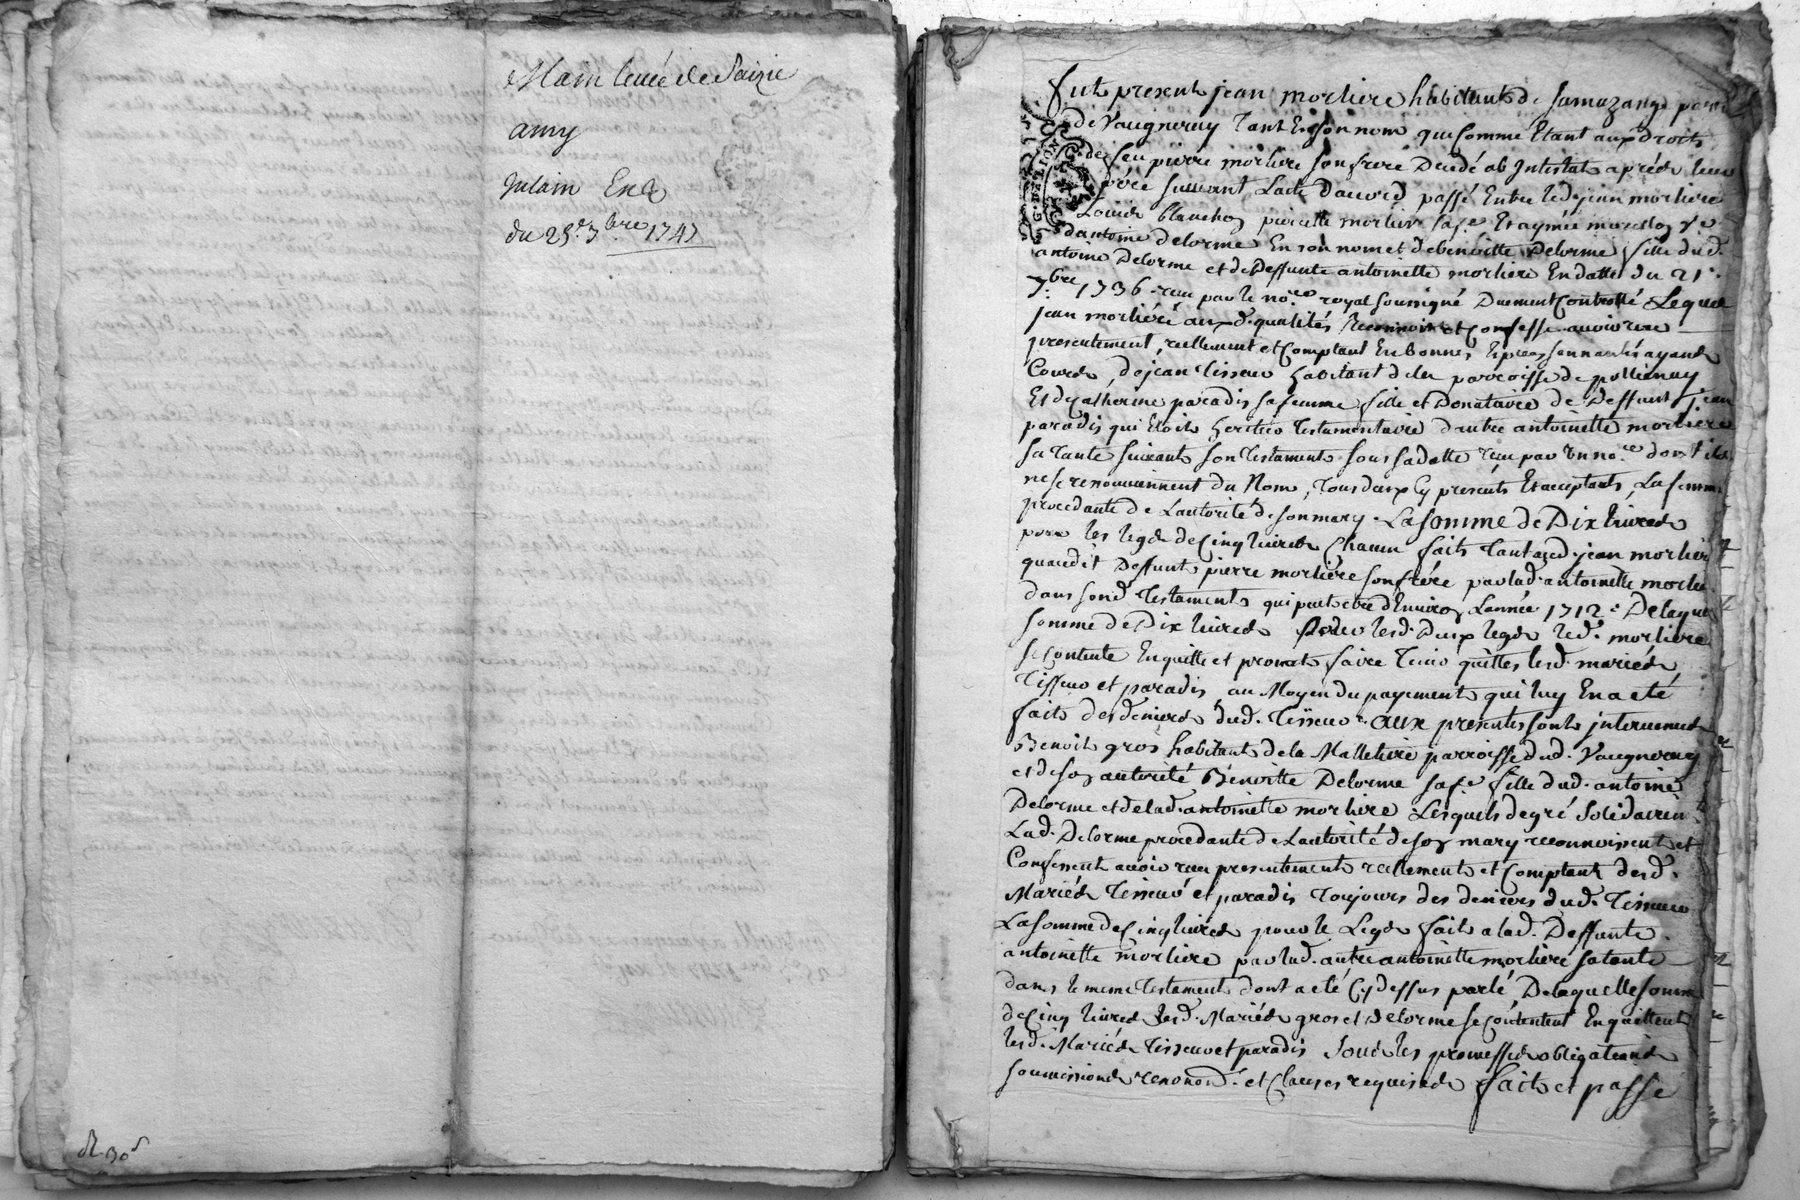 Main levée de Saizie
amy
Julain
du 25e 7bre 1747
fut present jean morliere habitant de
de Vaugneray tant En son nom que comme Etant aux droits
G. DE LION
de feu pierre morliere son frere Decedé ab Intestat après leur
père suivant Lacte daccord passé Entre led. jean morliere
Louis blanchon pierrette morliere sa fe. Et aymée ve.
dantoine delorme En son nom et de benoitte Delorme fille dud.
antoine Delorme et de Deffunte antoinette morliere En datte du 21e.
7bre 1736 receu par le nore. royal soussigné Duement Controllé Lequel
jean morlieré aux d. qualités Reconnoit et Confesse avoir receu
presentement, reellement et Comptant En bonnes Especes sonnantes ayant
Cours, de jean tisseur habitant de la parroisse de pollienay
Et de Catherine paradis sa femme fille et Donataire de Deffunt jean
paradis qui Etoit heritier testamentaire dautre antoinette morliere
sa tante suivant son testament sous sa datte receu par un nore dont ils
ne se renouviennent du Nom, tous deux Cy presents Et acceptants, La femme
procedante de Lautorité de son mary. La somme de Dix livres
pour les legs de Cinq livres Chacun faits tant aud. jean morliere
quaudit Deffunt pierre morliere son frére par lad. antoinette morliere
dans son d. testament qui peut etre d'Environ Lannée 1712. De laquelle
somme de Dix livres pour lesd. Deux legs led. morliere
se Contente En quitte et promet faire tenir quittes lesd. mariés
Tisseur et paradis au Moyen du payement qui luy En a eté
fait des deniers dud. Tisseur. aux presentes sont intervenus
Benoit gros habitant de la Malletiere parroisse dud. Vaugneray
et de son autorité Benoitte Delorme sa fe. fille dud. antoine
Delorme et de lad. antoinette morliere. Lesquels de gré Solidairement
Lad. Delorme procedante de Lautorité de son mary reconnoissent et
Confessent avoir receu presentement reellement et Comptant desd.
Mariés tisseur et paradis toujours des deniers dud. Tisseur
La somme de Cinq livres pour le Legs fait a lad. Deffunte
antoinette morliere par lad. autre antoinette morliere sa tante
dans le meme testament dont a eté Cy dessus parlé, De laquelle somme
de Cinq livres lesd. Mariés gros et delorme se Contentent En quittent
lesd. Mariés tisseur et paradis sous les promesses obligations
soumissions renonons. et Clauses requises fait et passé